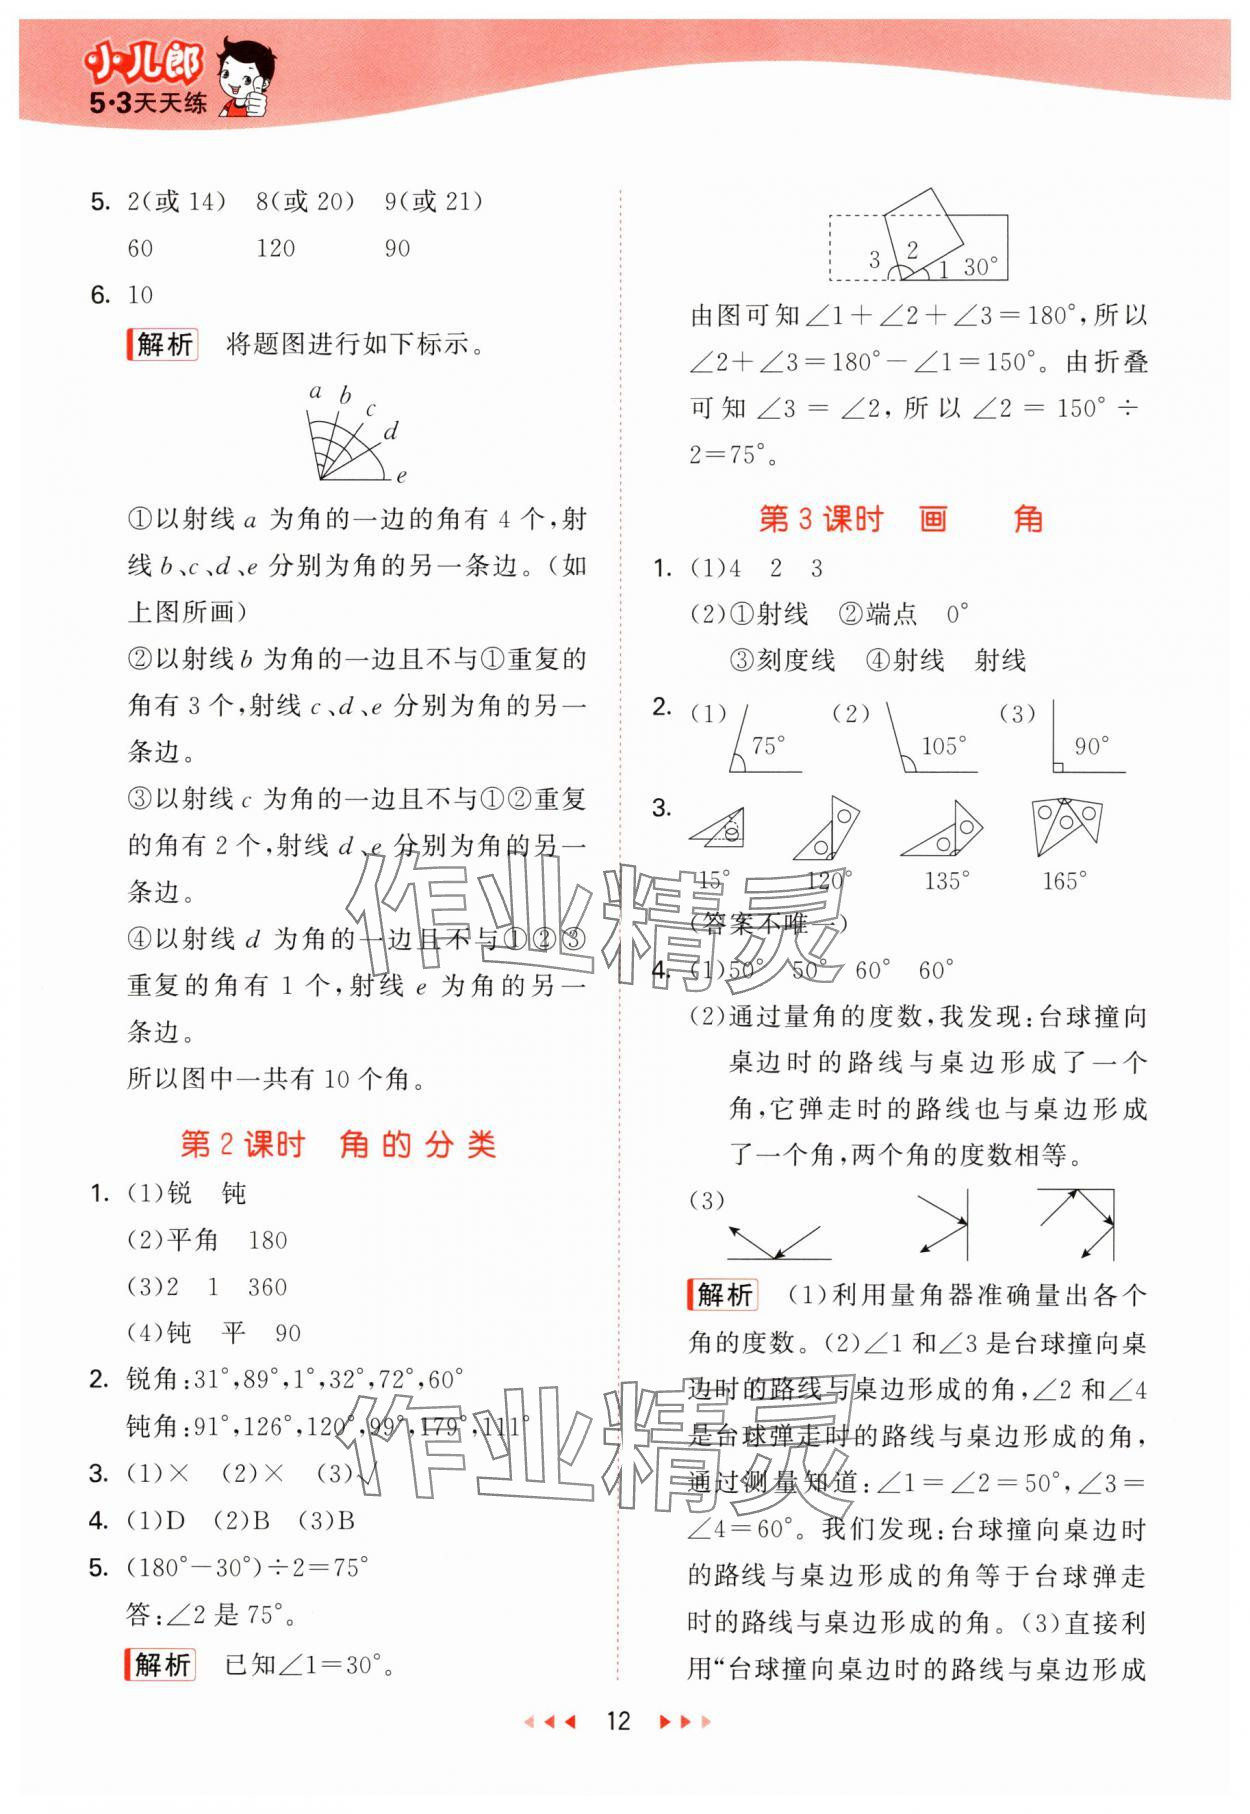 小儿郎
5·3天天练
5. 2(或14) 8(或20) 9(或21)
60 120 90
6. 10
解析 将题图进行如下标示。
a b c d e
①以射线a为角的一边的角有4个,射
线b、c、d、e分别为角的另一条边。(如
上图所画)
②以射线b为角的一边且不与①重复的
角有3个,射线c、d、e分别为角的另一
条边。
③以射线c为角的一边且不与①②重复
的角有2个,射线d、e分别为角的另一
条边。
④以射线d为角的一边且不与①②③
重复的角有1个,射线e为角的另一
条边。
所以图中一共有10个角。
第2课时 角的分类
1. (1)锐 钝
(2)平角 180
(3)2 1 360
(4)钝 平 90
2. 锐角:31°,89°,1°,32°,72°,60°
钝角:91°,126°,120°,99°,179°,111°
3. (1)× (2)× (3)√
4. (1)D (2)B (3)B
5. (180°-30°)÷2=75°
答:∠2是75°。
解析 已知∠1=30°。
3 2 1 30°
由图可知∠1+∠2+∠3=180°,所以
∠2+∠3=180°-∠1=150°。由折叠
可知∠3=∠2,所以∠2=150°÷
2=75°。
第3课时 画 角
1. (1)4 2 3
(2)①射线 ②端点 0°
③刻度线 ④射线 射线
2. (1) 75° (2) 105° (3) 90°
3.
15° 120° 135° 165°
(答案不唯一)
4. (1)50° 50° 60° 60°
(2)通过量角的度数,我发现:台球撞向
桌边时的路线与桌边形成了一个
角,它弹走时的路线也与桌边形成
了一个角,两个角的度数相等。
(3)
解析 (1)利用量角器准确量出各个
角的度数。(2)∠1和∠3是台球撞向桌
边时的路线与桌边形成的角,∠2和∠4
是台球弹走时的路线与桌边形成的角,
通过测量知道:∠1=∠2=50°,∠3=
∠4=60°。我们发现:台球撞向桌边时
的路线与桌边形成的角等于台球弹走
时的路线与桌边形成的角。(3)直接利
用“台球撞向桌边时的路线与桌边形成
12
作业精灵
作业精灵